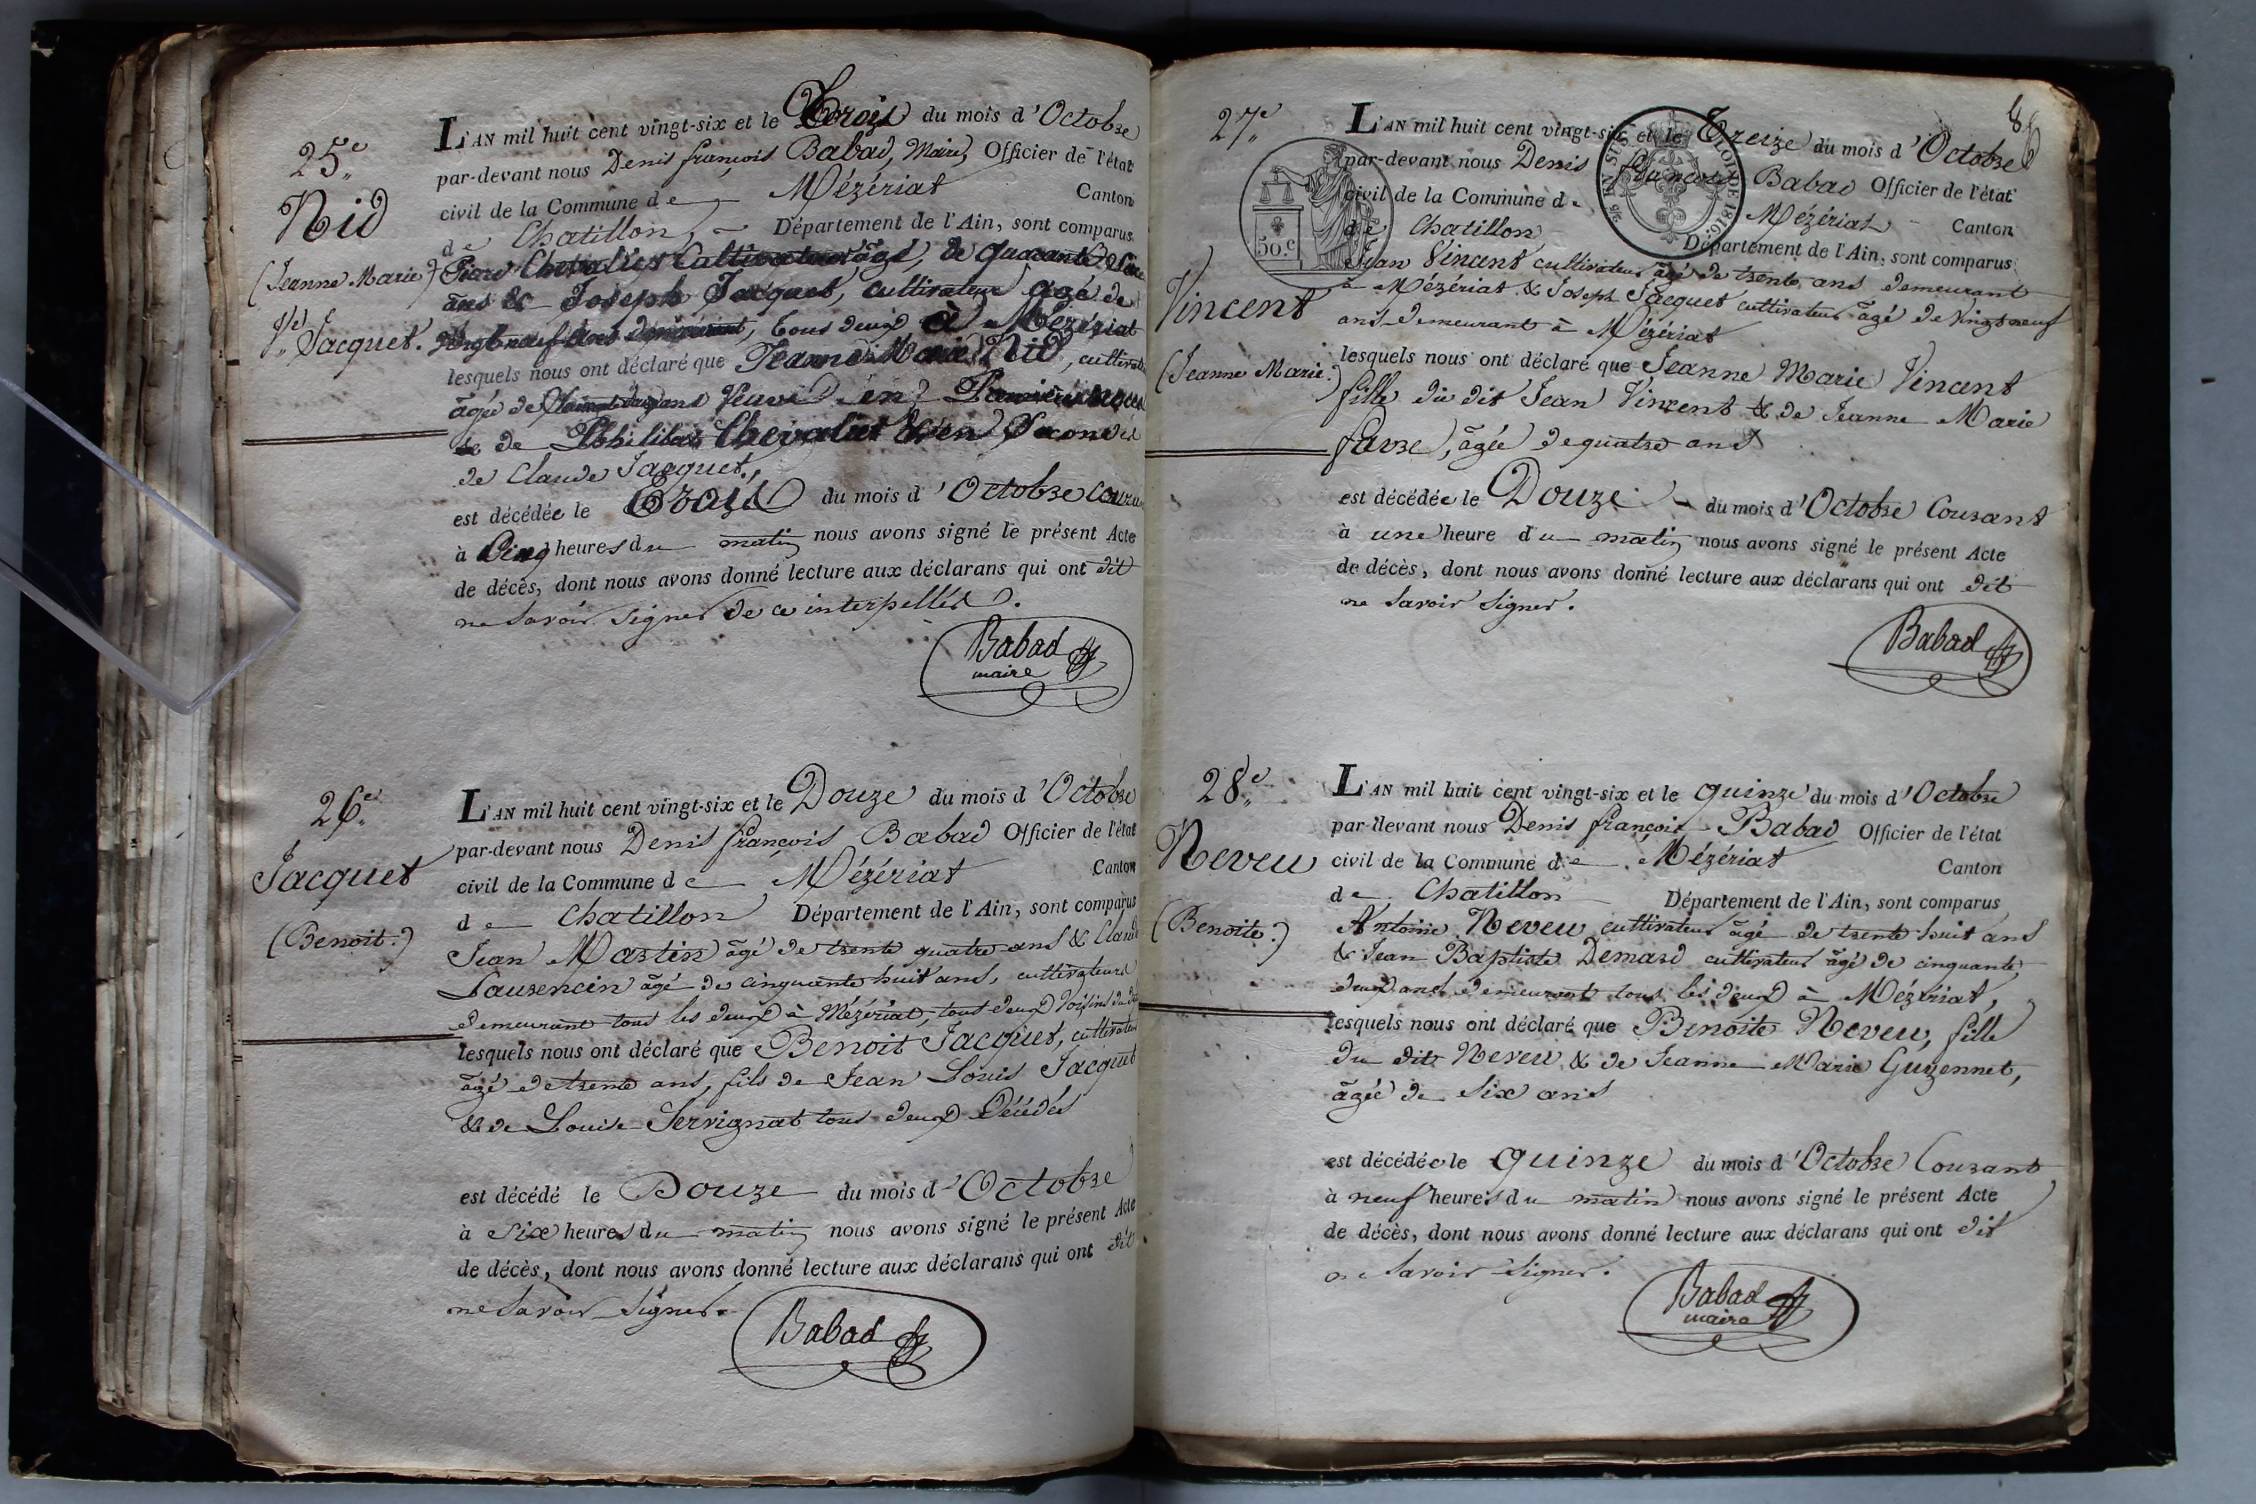 25e
Nid
(Jeanne Marie)
Ve Jacquet.
L'AN mil huit cent vingt-six et le Trois du mois d'Octobre
par-devant nous Denis françois Babad, Maire, Officier de l'état
civil de la Commune de Mézériat Canton
de Chatillon, Département de l'Ain, sont comparus
Chevalier Cultivateur âgé, de quarante
ans & Joseph Jacquet, cultivateur agé de
vingt neuf ans demeurant, tous deux à Mézériat
lesquels nous ont déclaré que Jeanne Marie Nid, cultivat
âgée de ans Veuve en
de Philibert Chevalier & en Secondes
de Claude Jacquet,
est décédée le Trois du mois d'Octobre Couran
à Cinq heures du matin nous avons signé le présent Acte
de décès, dont nous avons donné lecture aux déclarans qui ont dit
ne Savoir Signer de ce interpellés.
Babad
maire
26e
Jacquet
(Benoit.)
L'AN mil huit cent vingt-six et le Douze du mois d'Octobre
par-devant nous Denis françois Babad Officier de l'état
civil de la Commune de Mézériat Canton
de Chatillon Département de l'Ain, sont comparus
Jean Martin âgé de trente quatre ans & Claude
Laurencin âgé de cinquante huit ans, cultivateurs
demeurant tous les deux à Mézériat, tout deux Voisins du
lesquels nous ont déclaré que Benoit Jacquet, cultivateur
âgé de trente ans, fils de Jean Louis Jacquet
& de Louise Servignat tous deux Décédés
est décédé le Douze du mois d'Octobre
à Six heures du matin nous avons signé le présent Acte
de décès, dont nous avons donné lecture aux déclarans qui ont dit
ne Savoir Signer.
Babad
86
27e
Vincent
(Jeanne Marie.)
50.c
L'AN mil huit cent vingt-six et le Treize du mois d'Octobre
par-devant nous Denis françois Babad Officier de l'état
civil de la Commune de Mézériat Canton
de Chatillon Département de l'Ain, sont comparus
Jean Vincent cultivateur âgé de trente ans demeurant
à Mézériat & Joseph Jacquet cultivateur âgé de vingt neuf
ans demeurant à Mézériat
lesquels nous ont déclaré que Jeanne Marie Vincent
fille du dit Jean Vincent & de Jeanne Marie
favre, âgée de quatre ans
est décédée le Douze du mois d'Octobre Courant
à une heure du matin nous avons signé le présent Acte
de décès, dont nous avons donné lecture aux déclarans qui ont dit
ne Savoir Signer.
Babad
28e
Neveu
(Benoite.)
L'AN mil huit cent vingt-six et le quinze du mois d'Octobre
par-devant nous Denis françois Babad Officier de l'état
civil de la Commune de Mézériat Canton
de Chatillon Département de l'Ain, sont comparus
Antoine Neveu cultivateur âgé de trente huit ans
& Jean Baptiste Demard cultivateur âgé de cinquante
deux ans demeurant tous les deux à Mézériat,
lesquels nous ont déclaré que Benoite Neveu, fille
du dit Neveu & de Jeanne Marie Guyennet,
âgée de Six ans
est décédée le quinze du mois d'Octobre Courant
à neuf heures du matin nous avons signé le présent Acte
de décès, dont nous avons donné lecture aux déclarans qui ont dit
ne Savoir Signer.
Babad
maire